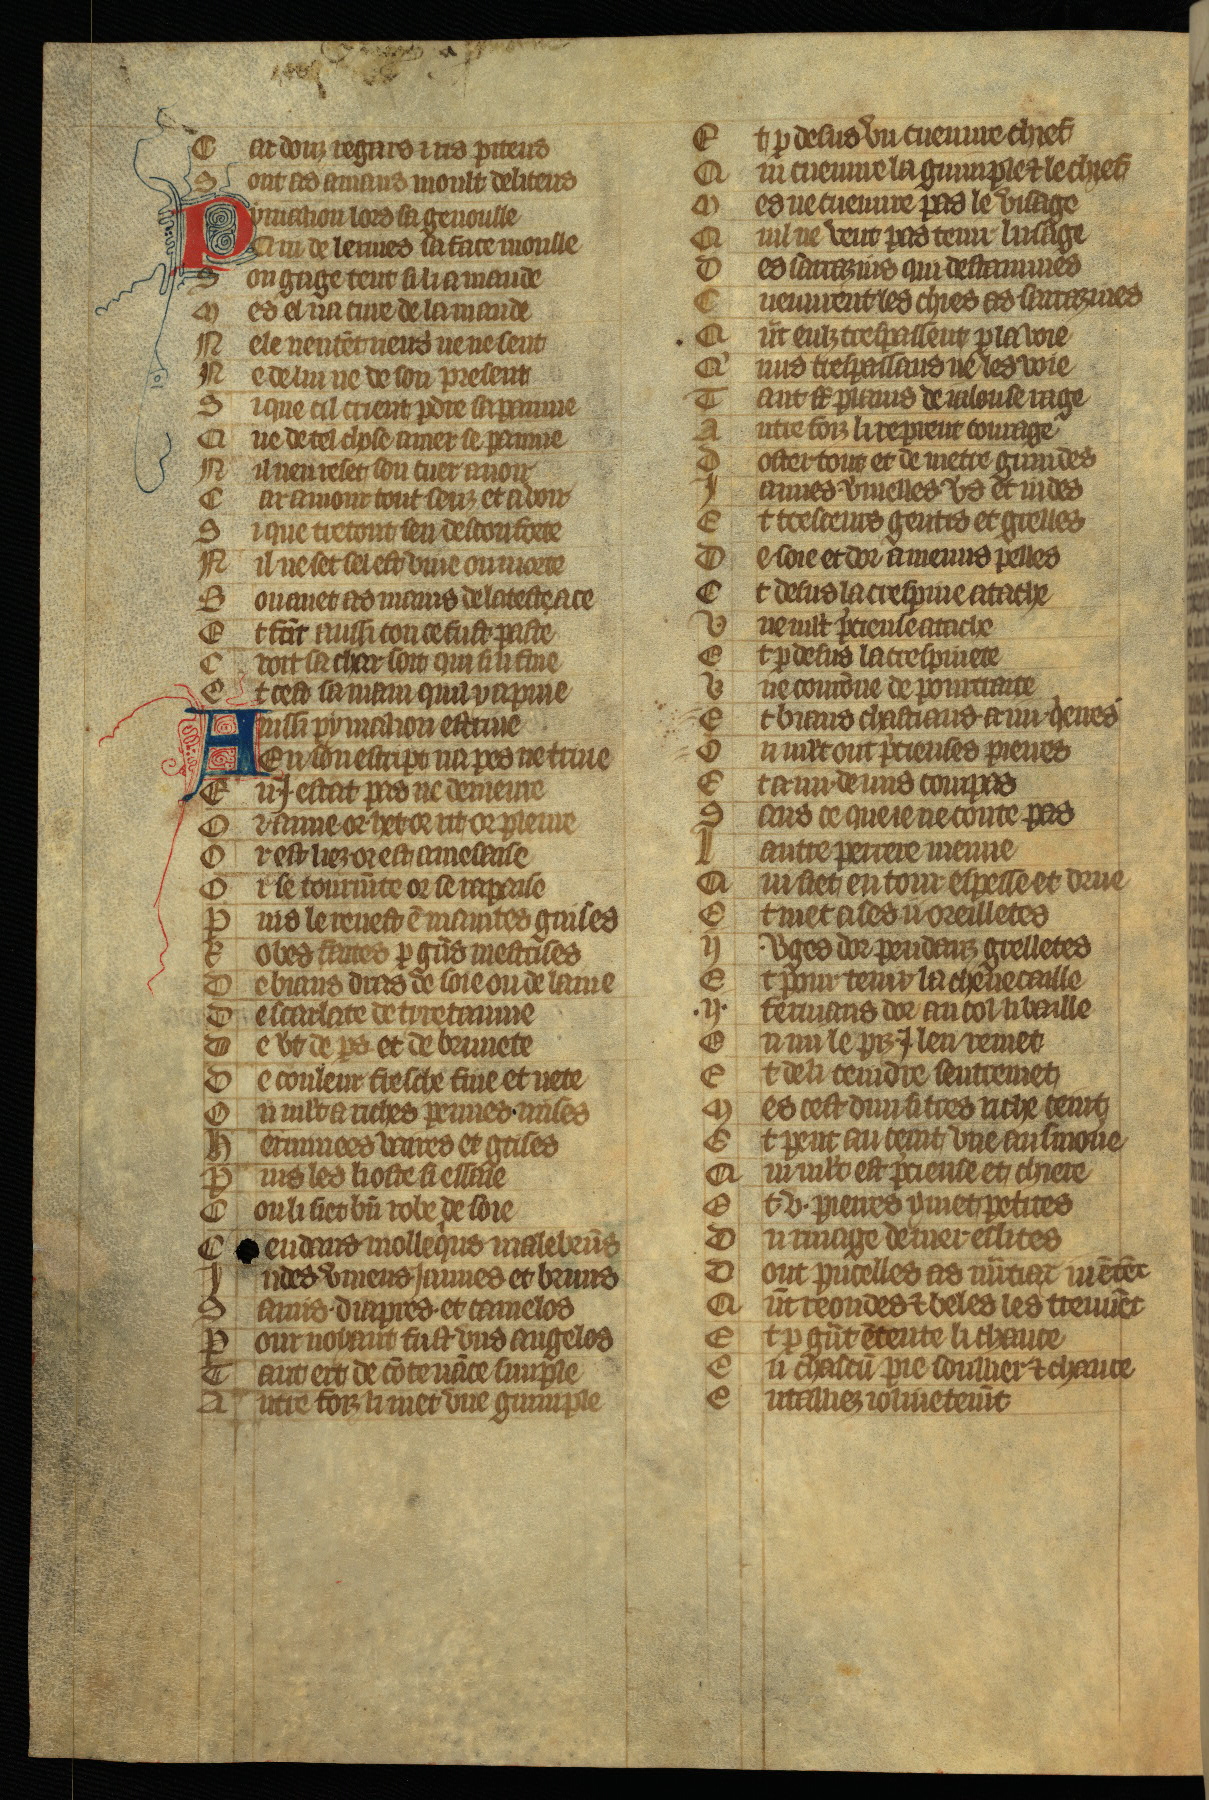 Car douz regars iris piteus
Sont as amans moult deliteus
Pymalion lors sa genoulle
Qui de lermes sa face moulle
Son gage tent si li amande
Mes el na cure de lamande
Nele nentent riens ne ne sent
Ne de lui ne de son present
Si que cil crient pdre sa painne
Qui de tel chose amer se painne
Nil nen reset son cuer auoir
Car amour tout senz et auoir
Si que tretout sen desconforte
Nil ne set sel est viue ou morte
Souauet as mains de la teste
Et croit aussi con ce fust paste
Croit sa char soit qui si li fuie
Et cest sa main quil y apuie
Aussi pymalion estriue
En son estript na pes ne triue
En .j. estat pas ne demeure
Or aime or het or rit or pleure
Or est liez or est a mesaise
Or se tourmente or se rapaise
Puis le reuest e maintes guises
Robes faites p gns mestrises
De biaus dras de soie ou de laine
Descarlate de tyretainne
De vert de ps et de brunete
De couleur fresche fine et nete
Ou mlt a riches pennes mises
Herminees vaires et grises
Puis les li oste si essaie
Con li siet bn robe de soie
Cendaus mollequis malebruns
Indes vmeus jaunes et bruns
Samis diapres et camelos
Pour noyant fust vns angelos
Tant ert de cotenace simple
Autre foiz li met vne guimple
Et p desus vn cueuure chief
Qui cueuure la guimple & le chief
Mes ne cueuure pas le visage
Quil ne veut pas tenir lusage
Des sarrazins qui destamines
Cueuurent les chies as sarrazines
Qnt eulz trespassent p la voie
Que nus trespassans ne les voie
Tant st plains de ialouse rage
Autre foiz li reprent courage
Doster tout et de metre guindes
Jaunes vmelles vs et indes
Et trescens gentis et grelles
De soie et dor a menus pelles
Et desus la crespine atache
Vne mlt pcieuse atache
Et p desus la crespinete
Vne couronne de pourtraite
Et biaus chastiaus a iiii qerres
Ou mlt out pcieuses pierres
Et a iiii demis compas
Sans ce que ie ne conte pas
Lautre perrere menue
Qui siet en tour espesse et drue
Et met a ses .ii. oreilletes
.ij. Vges dor pendanz grelletes
Et pour tenir la cheuecaille
.ij. fermaus dor au col li baille
En mi le piz .j. len remet
Et de li ceindre sentremet
Mes cest dun si tres riche ceint
Et pent au ceint vne ausmoniere
Qui mlt est pcieuse et chiere
Et .v. pierres y met petites
Du riuage de mer eslites
Dont pucelles as martiaus
Qnt reondes & beles les treuuet
Et p gnt etente li chauce
En chascu pie souller & chauce
Entailliez ioliuetemt